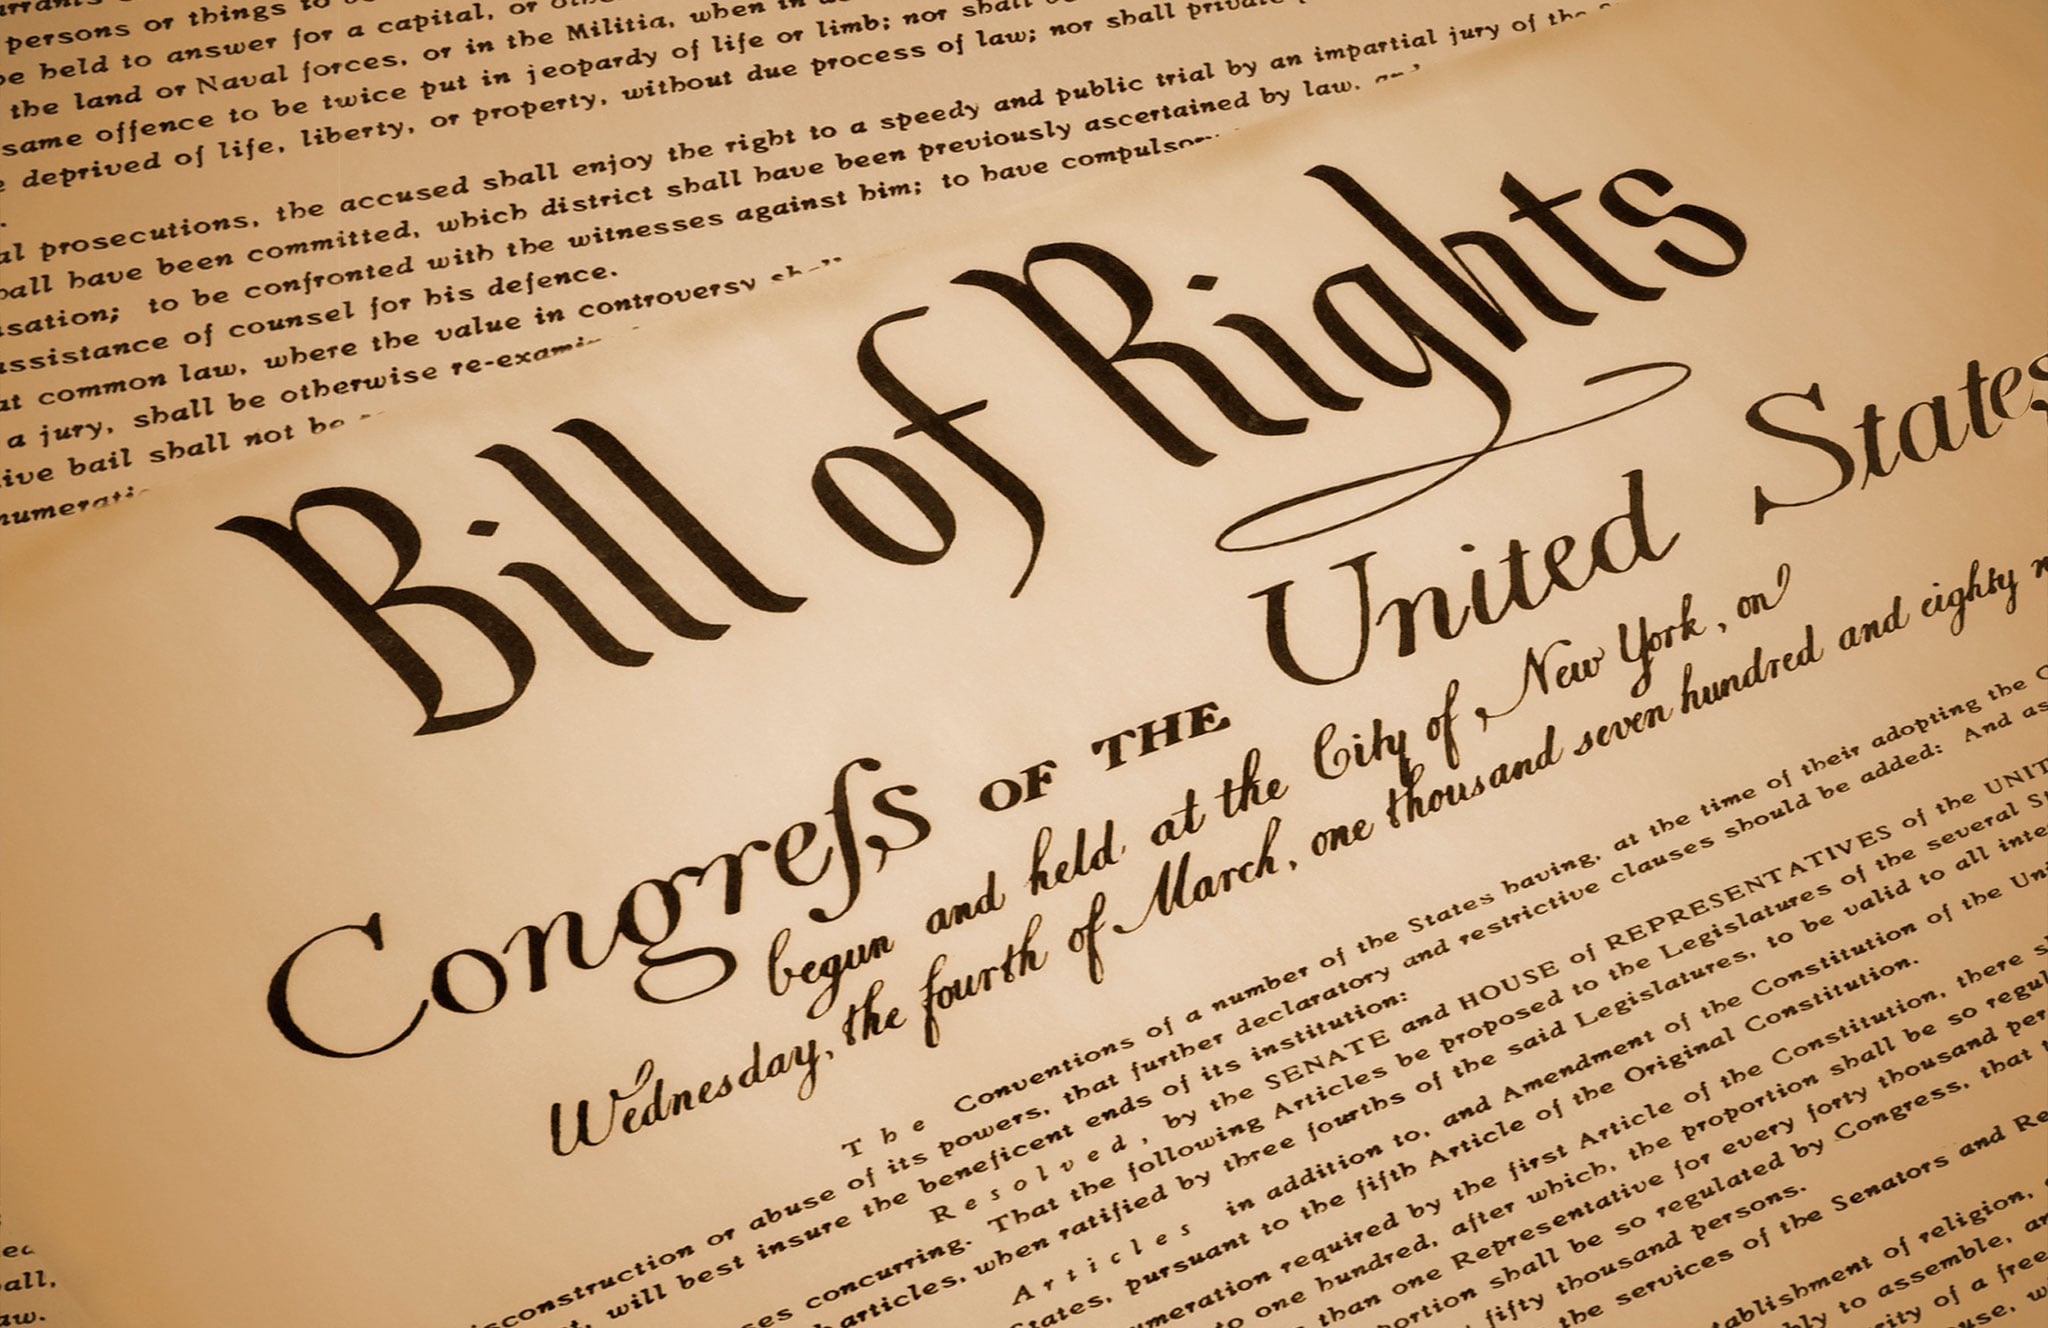 persons or things to
be held to answer for a capital, or
the land or Naval forces, or in the Militia, when in
same offence to be twice put in jeopardy of life or limb; nor shall
deprived of life, liberty, or property, without due process of law; nor shall private
prosecutions, the accused shall enjoy the right to a speedy and public trial by an impartial jury of the
have been committed, which district shall have been previously ascertained by law, and
to be confronted with the witnesses against him; to have
assistance of counsel for his defence.
common law, where the value in controversy
a jury, shall be otherwise
bail shall not be
Bill of Rights
Congreſs OF THE United States,
begun and held at the City of New York, on
Wednesday, the fourth of March, one thousand seven hundred and eighty
The Conventions of a number of the States having, at the time of their adopting the
or abuse of its powers, that further declaratory and restrictive clauses should be added: And as
will best insure the beneficent ends of its institution:
Resolved, by the SENATE and HOUSE of REPRESENTATIVES of the
concurring. That the following Articles be proposed to the Legislatures of the several
articles, when ratified by three fourths of the said Legislatures, to be valid to all
Articles in addition to, and Amendment of the Constitution of the
pursuant to the fifth Article of the Original Constitution.
required by the first Article of the Constitution, there
one hundred, after which, the proportion shall be so
than one Representative for every forty thousand
shall be so regulated by Congress, that
fifty thousand persons.
the services of the Senators and
of religion,
to assemble,
of a free